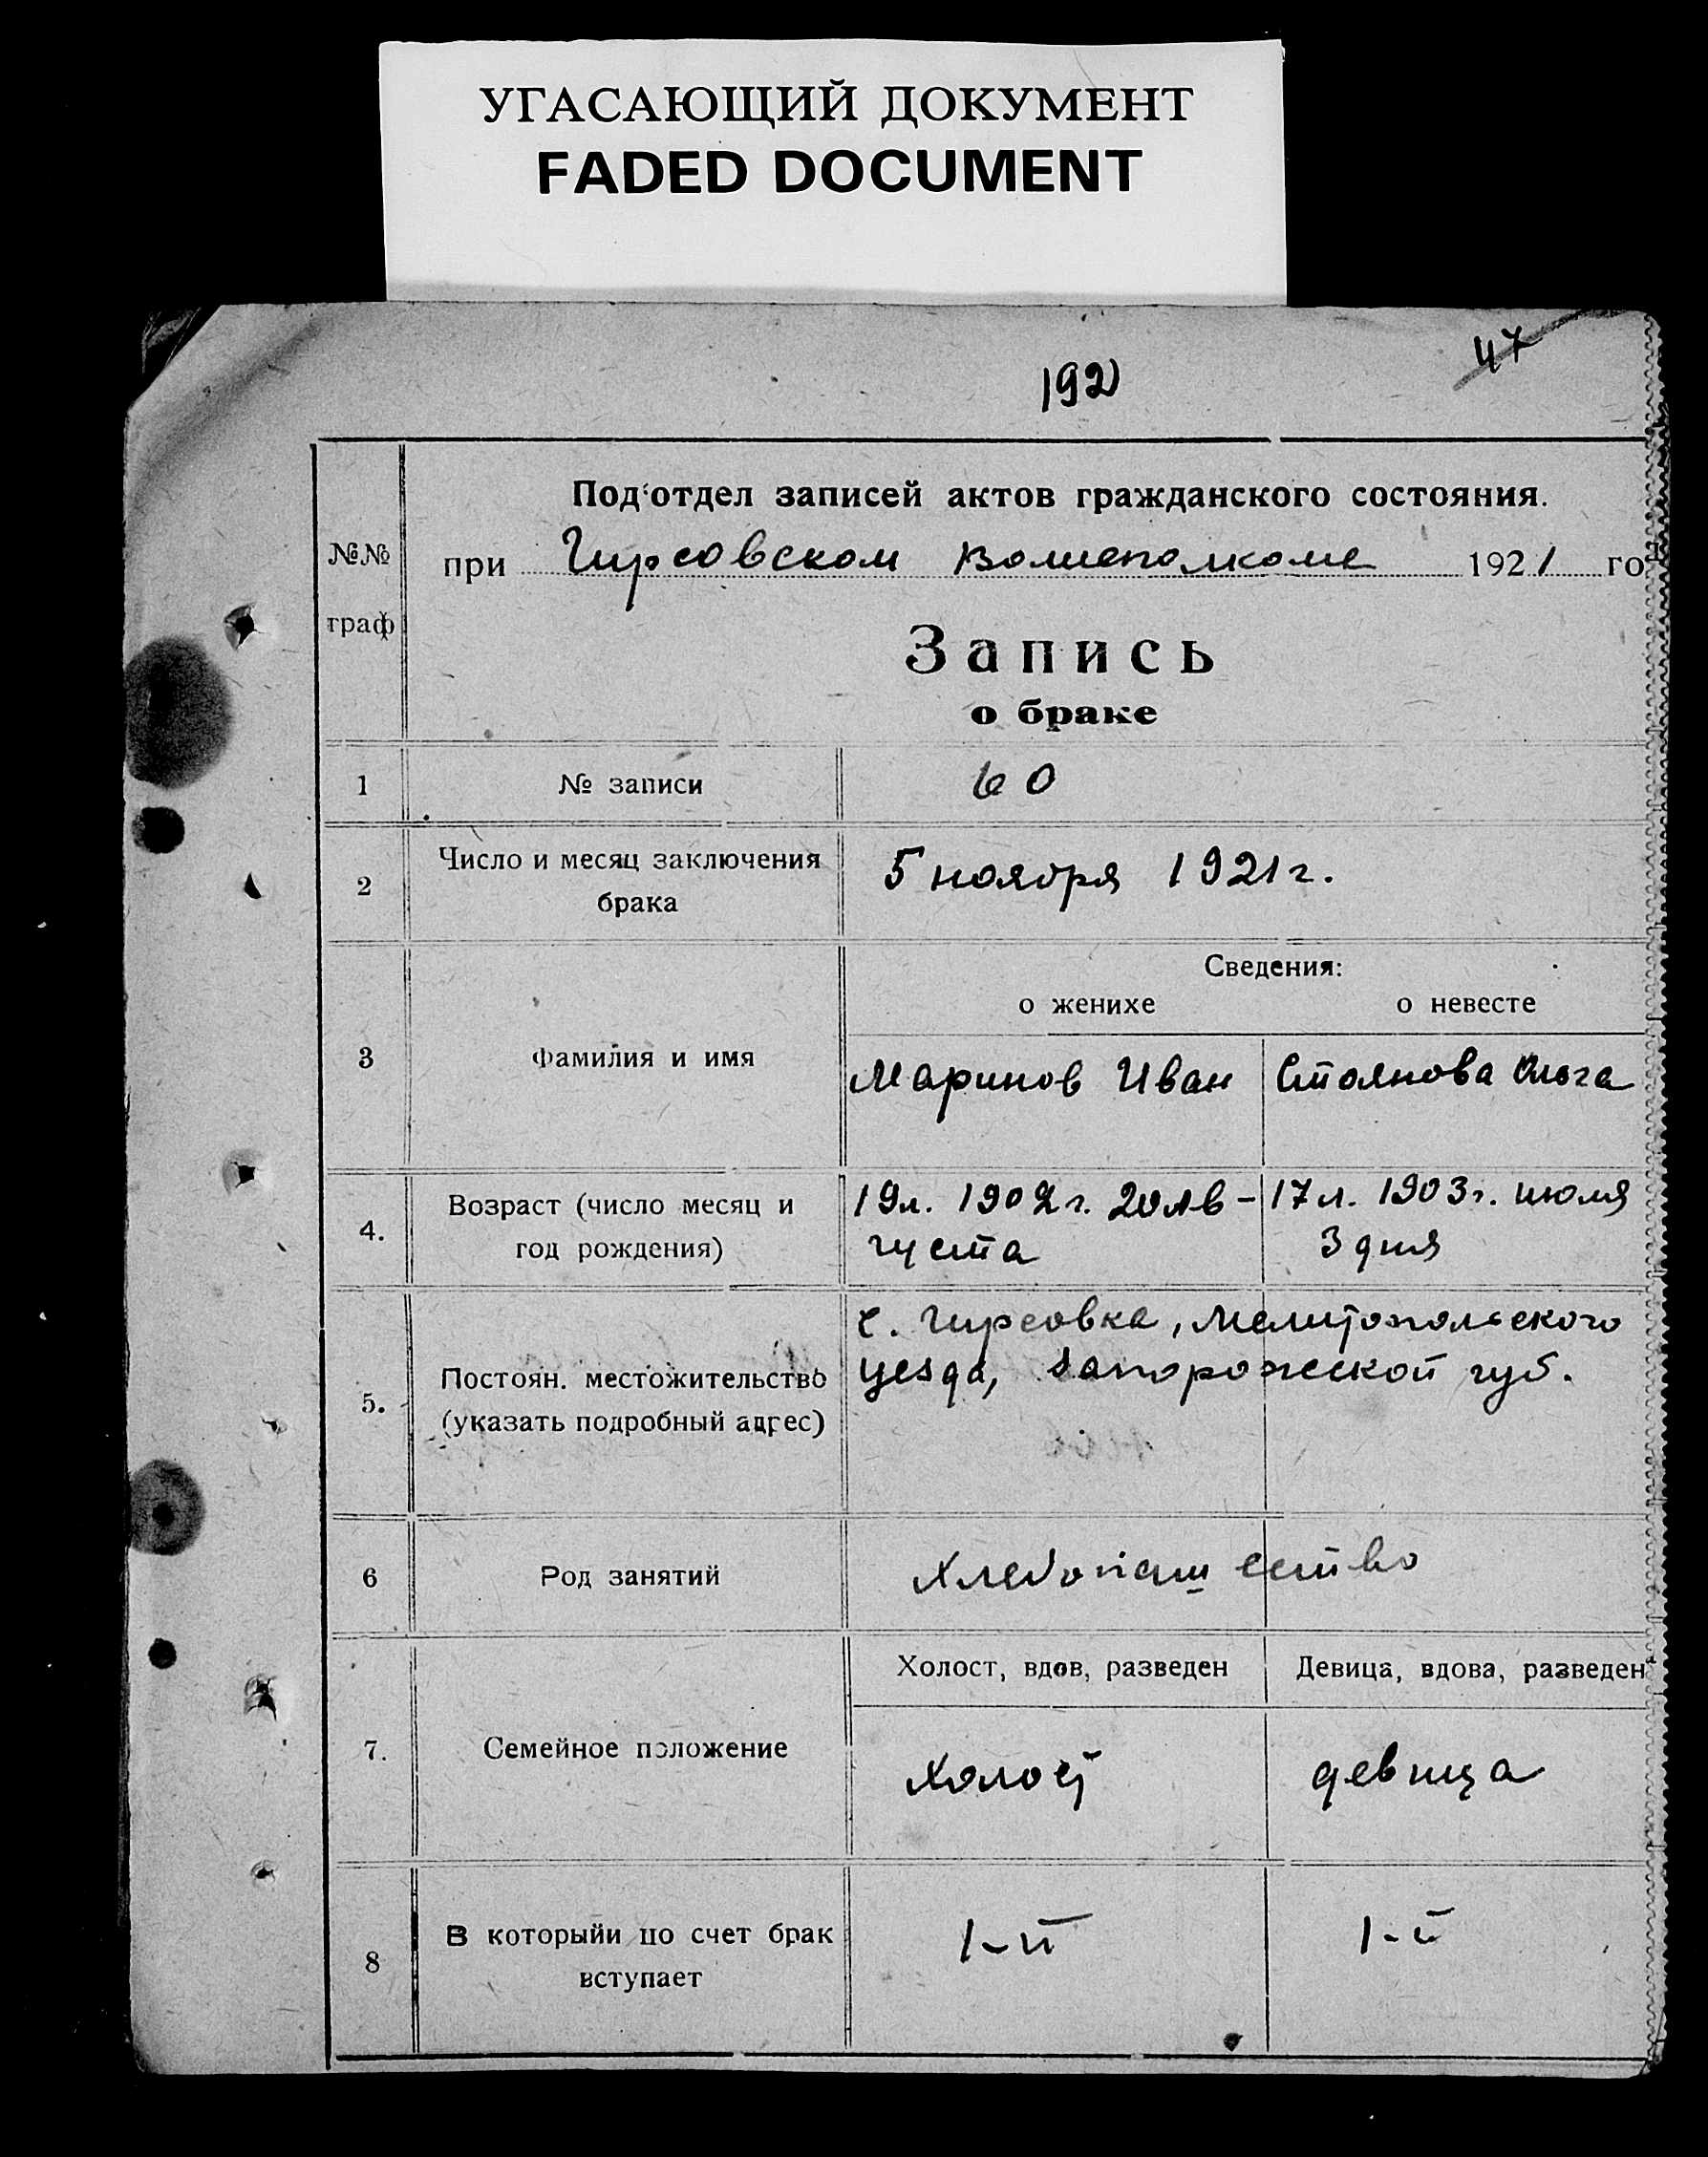 УГАСАЮЩИЙ ДОКУМЕНТ
FADED DOCUMENT
47
192
Под'отдел записей актов гражданского состояния.
№№ граф
при Гирсовском 1921 го
Запись
о браке
1 № записи 60
2 Число и месяц заключения брака 5 ноября 1921 г.
Сведения:
о женихе о невесте
3 Фамилия и имя Маринов Иван Стоянова Ольга
4. Возраст (число месяц и 19 л. 1902 г. 20 Ав- 17 л. 1903 г. июля
год рождения) густа 3 дня
с. Гирсовка, Мелитопольского
5. Постоян. местожительство уезда, Запорожской губ.
(указать подробный адрес)
6 Род занятий Хлебопашество
Холост, вдов, разведен Девица, вдова, разведен
7. Семейное положение Холост девица
8 В которыйи по счет брак 1-й 1-й
вступает